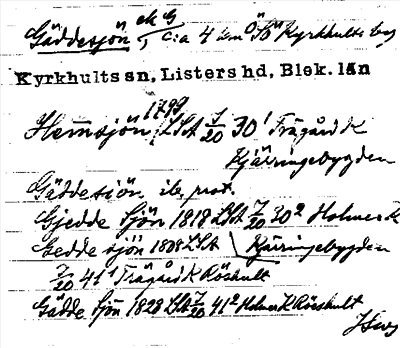 Gäddesjön, c:a 4 km Kyrkhults
Kyrkhults sn, Listers hd, Blek. län
1799
Hemsjön LSA J/20 30¹ Trägård K
Kjärringebygden
Gäddesjön ib. prot.
Gjedde Sjön 1818 LSA J/20 30² Holmer K
Gedde sjön 1808 LSA Kjärringebygden
J/20 41¹ Trägård K Röshult
Gädde Sjön 1828 LSA J/20 41² Holmer K Röeshult